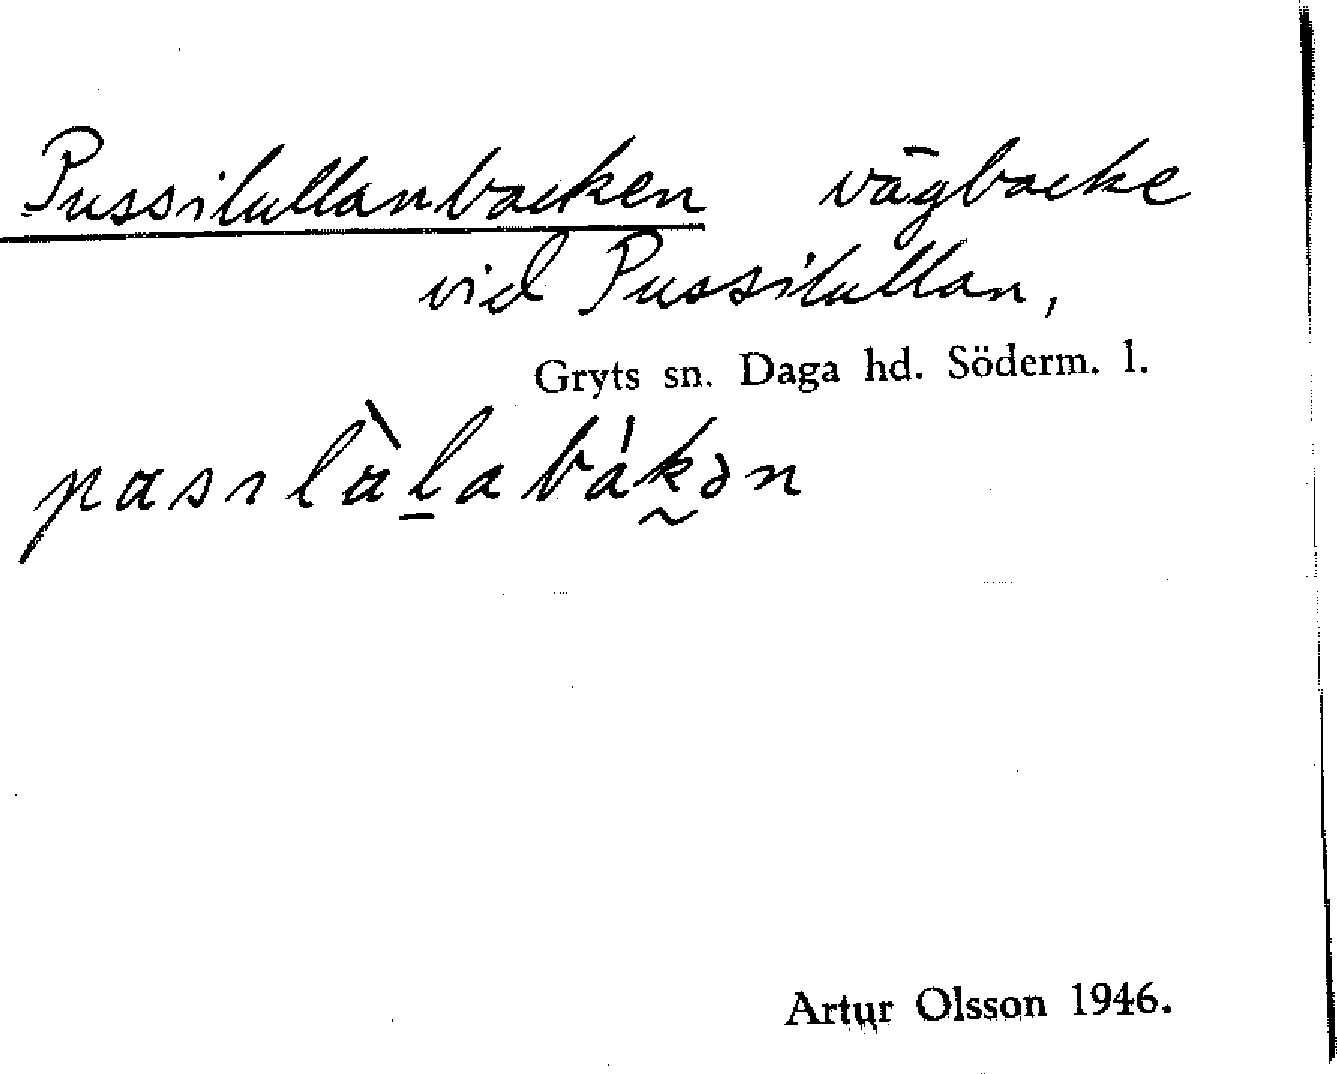 Pussilullanbacken vägbacke
vid Pussilullan,
Gryts sn. Daga hd. Söderm. l.
Artur Olsson 1946.